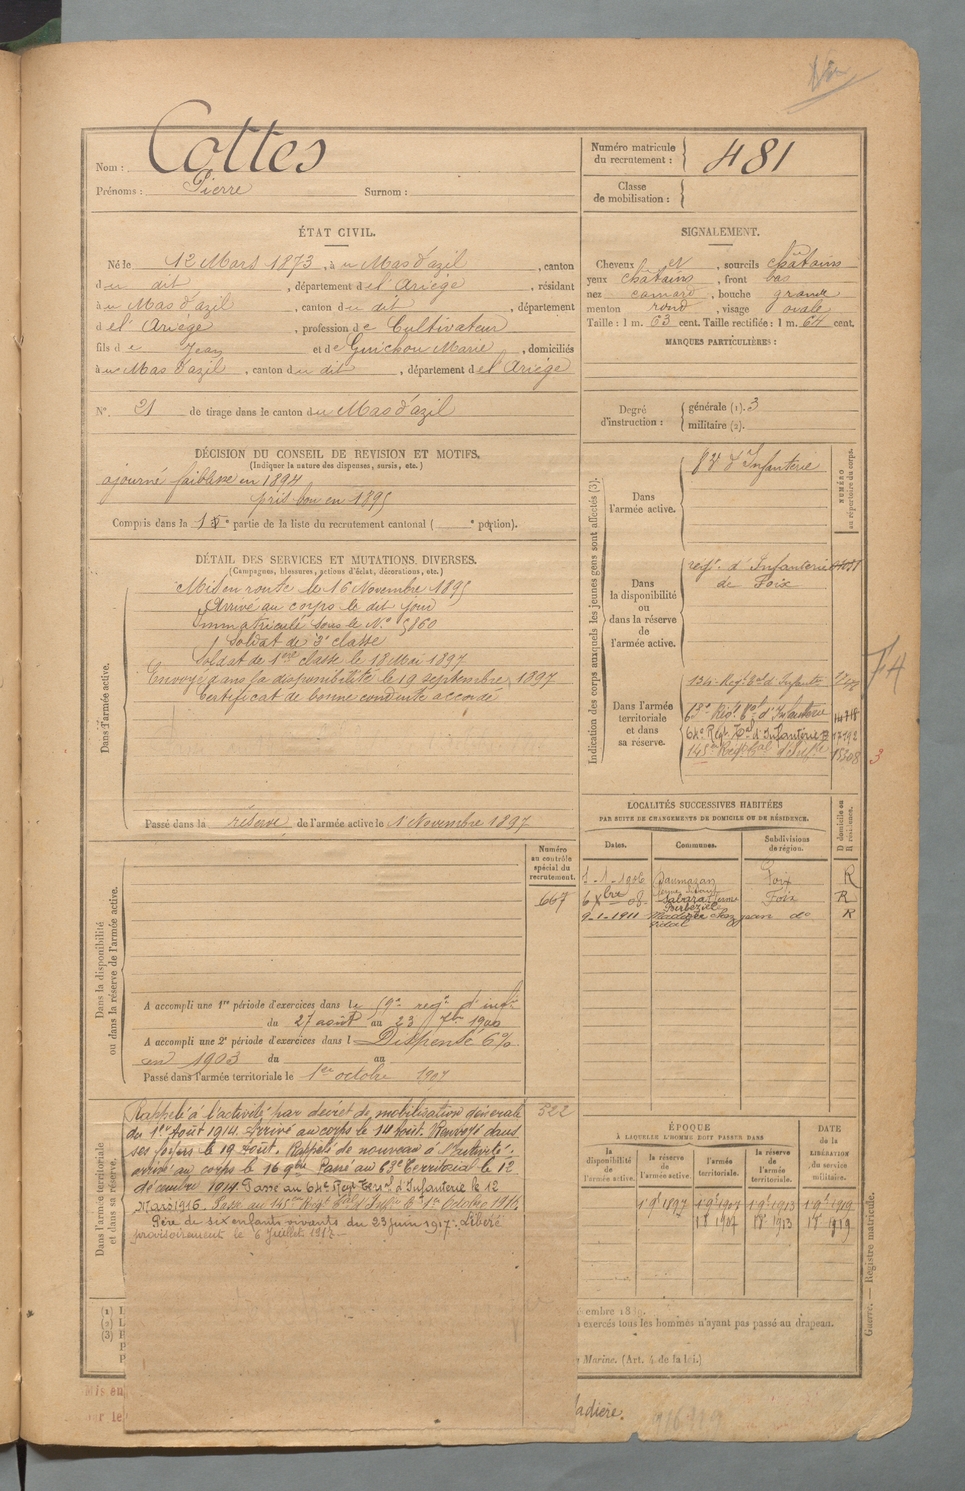 Nom : Cottes
Prénoms : Pierre Surnom :
Numéro matricule
du recrutement : 481
Classe
de mobilisation :
ÉTAT CIVIL.
Né le 12 Mars 1873, à u Mas d'azil, canton
du dit, département de l'Ariège, résidant
au Mas d'azil, canton du dit, département
de l'Ariège, profession de Cultivateur
fils de Jean et de Guichou Marie, domiciliés
au Mas d'azil, canton du dit, département de l'Ariège
N°. 21 de tirage dans le canton du Mas d'azil
SIGNALEMENT.
Cheveux et, sourcils châtains
yeux châtains, front bas
nez camard, bouche grande
menton rond, visage ovale
Taille : 1 m. 63 cent. Taille rectifiée : 1 m. 64 cent.
MARQUES PARTICULIÈRES :
Degré
d'instruction :
générale (1). 3
militaire (2).
DÉCISION DU CONSEIL DE REVISION ET MOTIFS.
(Indiquer la nature des dispenses, sursis, etc.)
ajourné faiblesse en 1894
pris bon en 1895
Compris dans la 1e partie de la liste du recrutement cantonal ( e portion).
DÉTAIL DES SERVICES ET MUTATIONS DIVERSES.
(Campagnes, blessures, actions d'éclat, décorations, etc.)
Dans l'armée active.
Mis en route le 16 Novembre 1895
Arrivé au corps le dit jour
Immatriculé sous le N° 5860
Soldat de 2e classe
Soldat de 1ere classe le 18 Mai 1897
Envoyé dans la disponibilité le 19 septembre 1897
Certificat de bonne conduite accordé
Passé dans la réserve de l'armée active le 1 Novembre 1897
Indication des corps auxquels les jeunes gens sont affectés (3).
NUMÉRO
au répertoire du corps.
Dans
l'armée active.
d'Infanterie
Dans
la disponibilité
ou
dans la réserve
de
l'armée active.
régt. d'Infanterie
de Foix
Dans l'armée
territoriale
et dans
sa réserve.
134e Régt Tal d'Infanterie
63e Régt Tal d'Infanterie 14718
64e Régt Tal d'Infanterie 17192
145e Régt Tal d'Infie 15308
3
74
LOCALITÉS SUCCESSIVES HABITÉES
PAR SUITE DE CHANGEMENTS DE DOMICILE OU DE RÉSIDENCE.
D domicile ou
R résidence.
Dates. Communes. Subdivisions
de région.
1-1-1906 Daumazan Foix R
6 Xbre 08 Sabarat Foix R
9-1-1911 chez Jean do R
Vidal
Numéro
au contrôle
spécial du
recrutement.
667
Dans la disponibilité
ou dans la réserve de l'armée active.
A accompli une 1re période d'exercices dans le 59e régt d'infie
du 27 août au 23 7bre 1900
A accompli une 2e période d'exercices dans l Dispensé 6%
en 1903 du au
Passé dans l'armée territoriale le 1er octobre 1907
Dans l'armée territoriale
et dans sa réserve.
Rappelé à l'activité par décret de mobilisation générale 322
du 1er Août 1914. Arrivé au corps le 14 Août. Renvoyé dans
ses foyers le 19 Août. Rappelé de nouveau à l'activité.
arrivé au corps le 16 9bre. Passé au 63e Territorial le 12
décembre 1914 Passé au 64e Régt Terral d'Infanterie le 12
Mars 1916. Passé au 145e Régt Tal d'Infie le 1er Octobre 1916.
Père de six enfants vivants du 23 juin 1917. Libéré
provisoirement le 6 Juillet 1917.
ÉPOQUE
À LAQUELLE L'HOMME DOIT PASSER DANS
DATE
de la
LIBÉRATION
du service
militaire.
la
disponibilité
de
l'armée active.
la réserve
de
l'armée active.
l'armée
territoriale.
la réserve
de
l'armée
territoriale.
1 9bre 1897 1 9bre 1907 1 9bre 1913 1 9bre 1919
1 8bre 1907 1 8bre 1913 1 8bre 1919
Guerre. — Registre matricule.
(1) L
(2) L
(3)
exercés tous les hommes n'ayant pas passé au drapeau.
Marine. (Art. 4 de la loi.)
Mis en
ur le
adière.